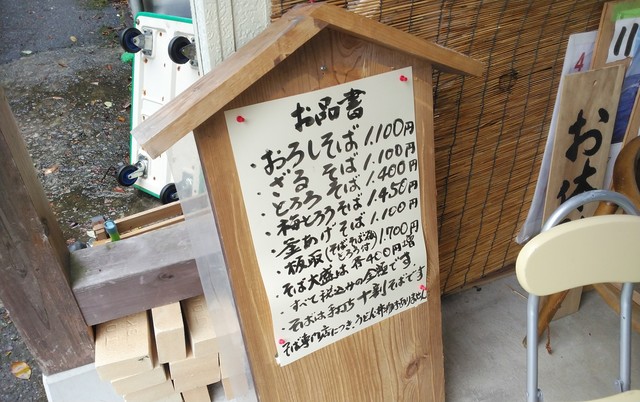 お品書
・おろしそば 1,100円
・ざるそば 1,100円
・とろろそば 1,400円
・梅とろろそば 1,450円
・釜あげそば 1,100円
・板取(そば、そば湯、とろろ付) 1,700円
・そば大盛は各400円増
・すべて税込みの金額です。
・そばは手打ち十割そばです
・そば専門店につき、うどん・丼物はありません
お休
4
11